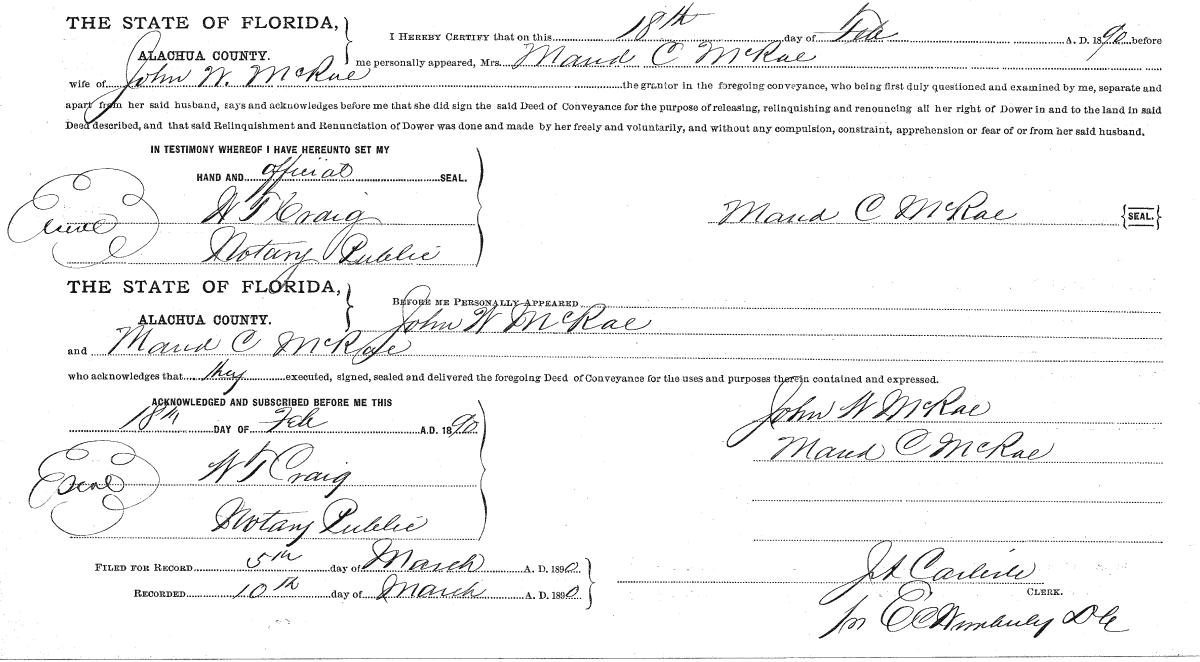 THE STATE OF FLORIDA,
ALACHUA COUNTY.
I HEREBY CERTIFY that on this 18th day of Feb A. D. 1890 before
me personally appeared, Mrs. Maud C McRae
wife of John W. McRae the grantor in the foregoing conveyance, who being first duly questioned and examined by me, separate and
apart from her said husband, says and acknowledges before me that she did sign the said Deed of Conveyance for the purpose of releasing, relinquishing and renouncing all her right of Dower in and to the land in said
Deed described, and that said Relinquishment and Renunciation of Dower was done and made by her freely and voluntarily, and without any compulsion, constraint, apprehension or fear of or from her said husband.
IN TESTIMONY WHEREOF I HAVE HEREUNTO SET MY
HAND AND official SEAL.
W T Craig
Notary Public
Maud C McRae {SEAL.}
THE STATE OF FLORIDA,
ALACHUA COUNTY.
BEFORE ME PERSONALLY APPEARED
John W McRae
and Maud C McRae
who acknowledges that they executed, signed, sealed and delivered the foregoing Deed of Conveyance for the uses and purposes therein contained and expressed.
ACKNOWLEDGED AND SUBSCRIBED BEFORE ME THIS
18th DAY OF Feb A.D. 1890
Seal
W T Craig
Notary Public
John W McRae
Maud C McRae
FILED FOR RECORD 5th day of March A. D. 1890.
RECORDED 10th day of March A. D. 1890.
J A Carlisle
CLERK.
pr E C Wimberly D C